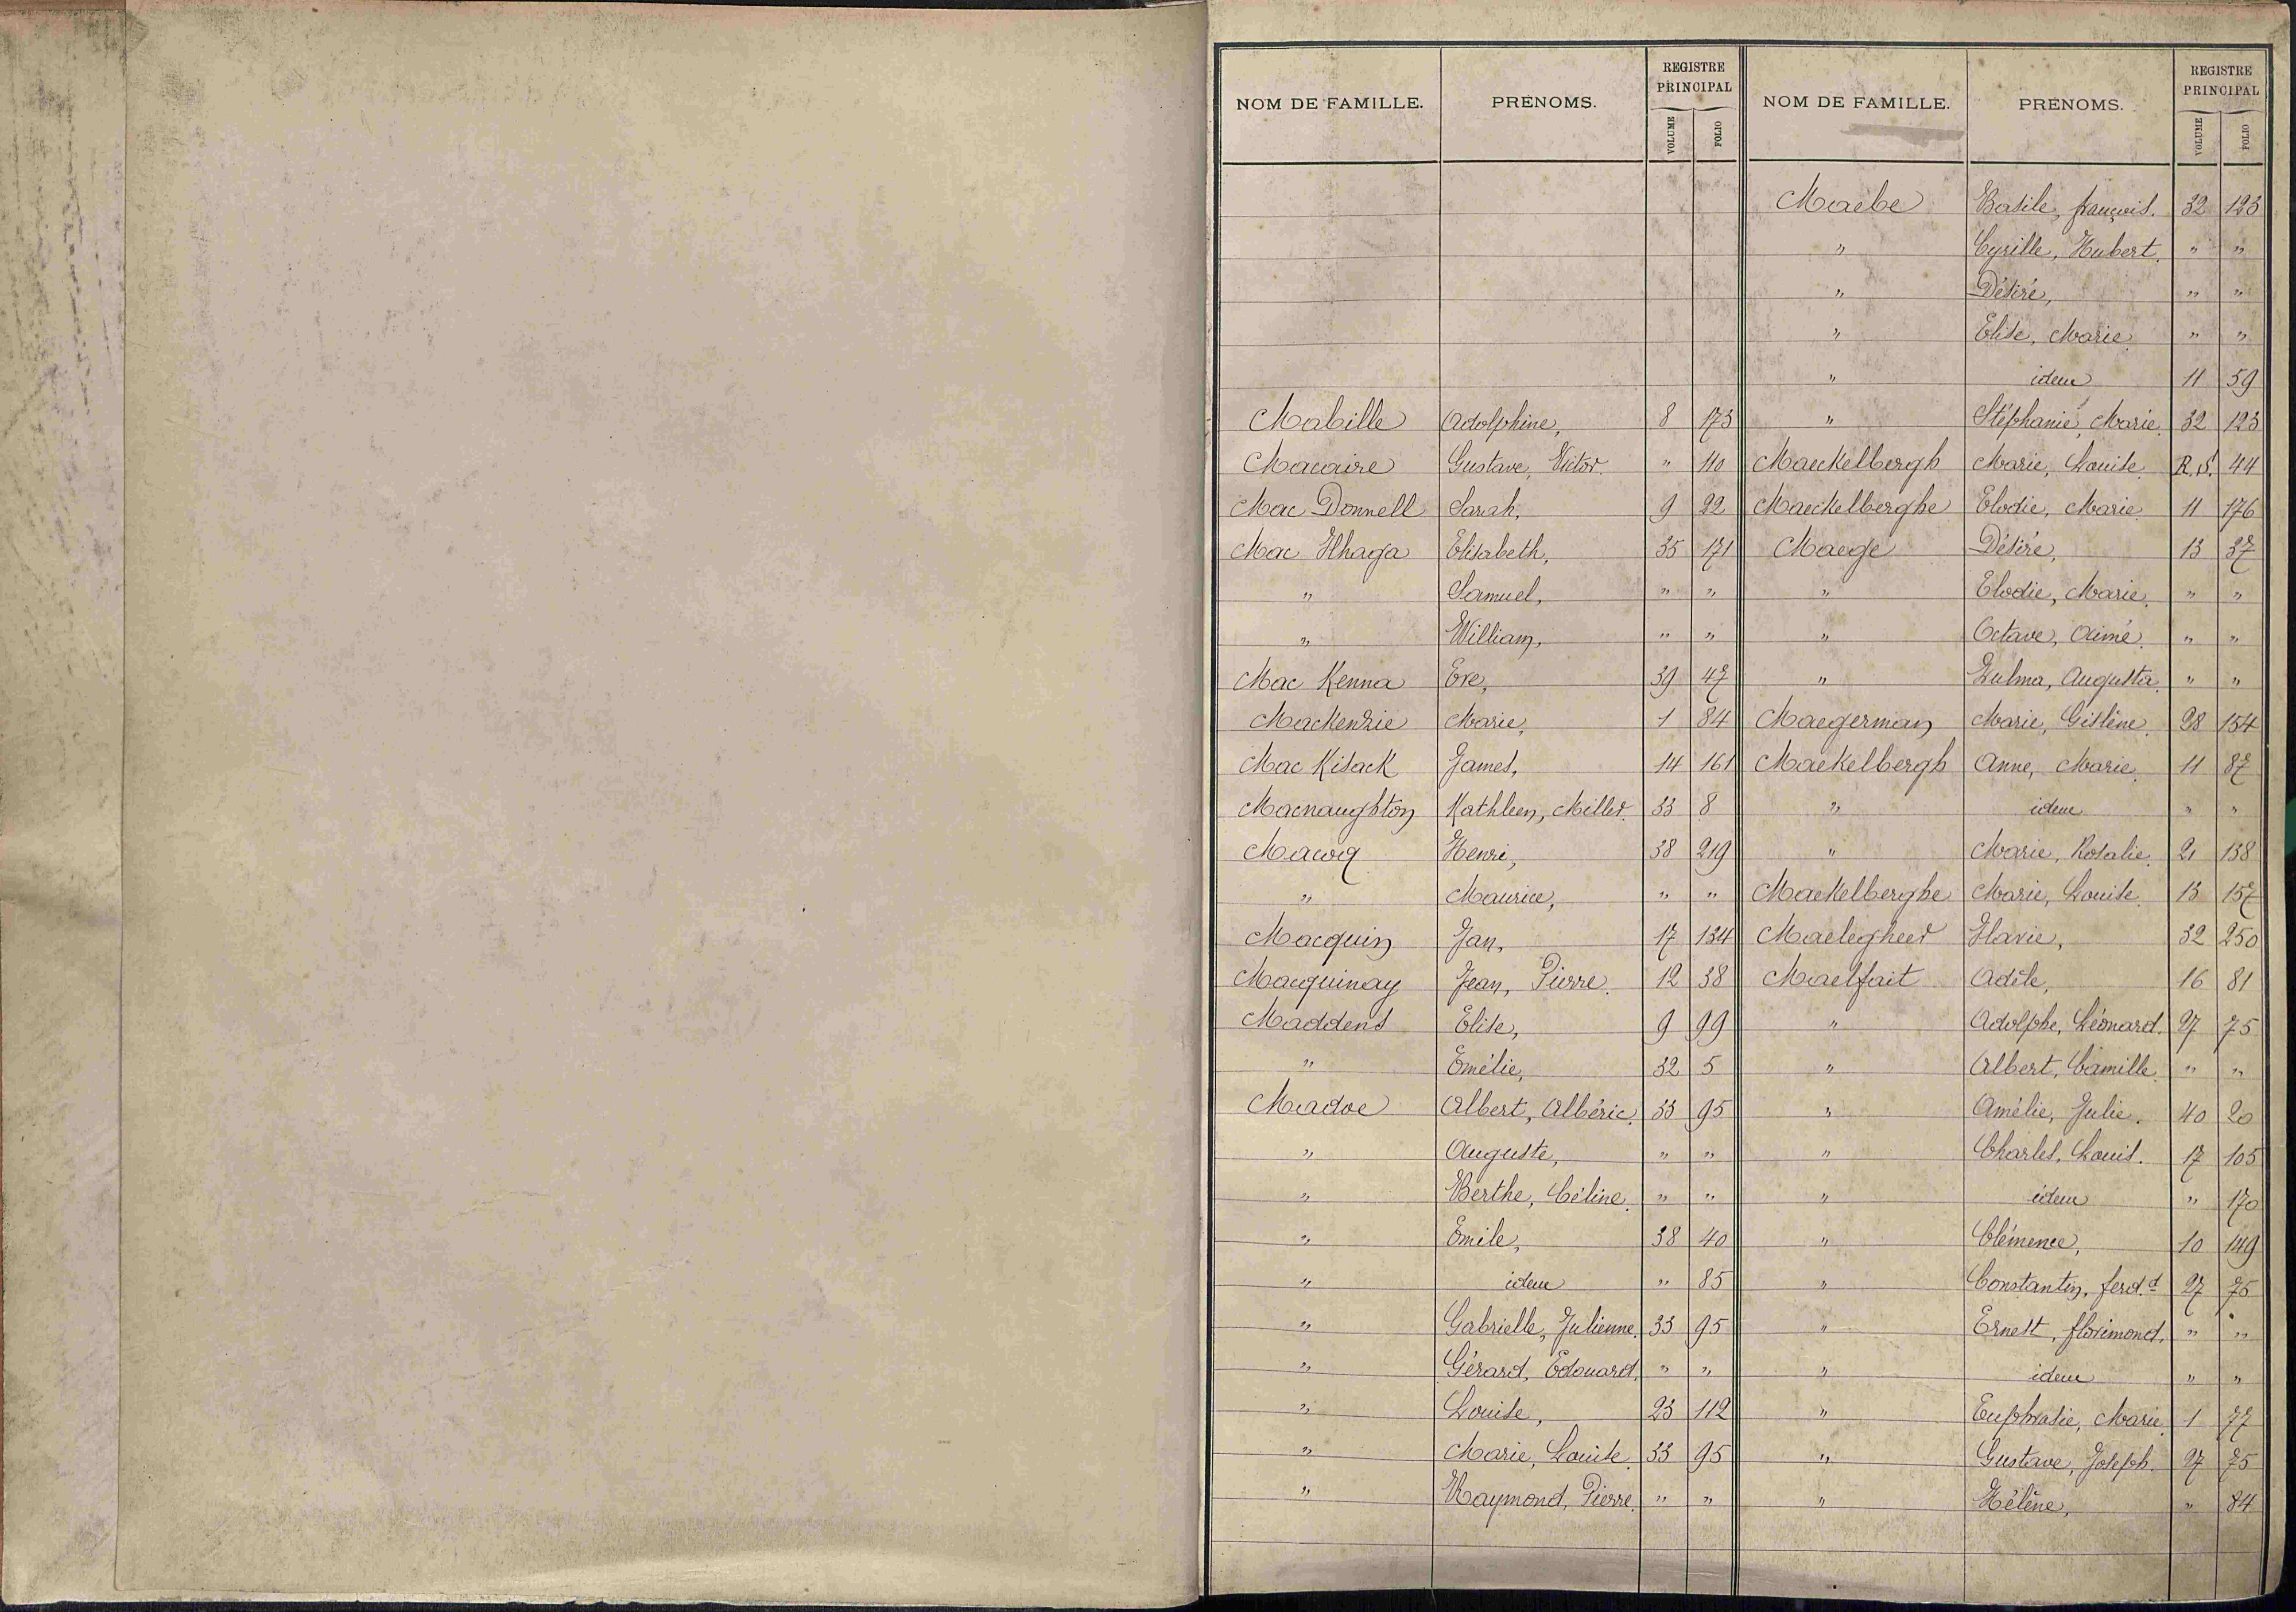 NOM DE FAMILLE. PRÉNOMS. REGISTRE PRINCIPAL VOLUME FOLIO
Mabille Adolphine, 8 173
Macaire Gustave, Victor. " 110
Mac Donnell Sarah, 9 22
Mac Ilhaga Elisabeth, 35 171
" Samuel, " "
" William, " "
Mac Kenna Eve, 39 47
Mackenzie Marie, 1 84
Mac Kisack James, 14 161
Macnaughton Kathleen, Miller. 33 8
Macocq Henri, 38 219
" Maurice, " "
Macquin Jan, 17 134
Macquinay Jean, Pierre. 12 38
Maddens Elise, 9 99
" Emélie, 32 5
Madoe Albert, Albéric. 33 95
" Auguste, " "
" Berthe, Céline. " "
" Emile, 38 40
" idem " 85
" Gabrielle, Julienne. 33 95
" Gérard, Edouard. " "
" Louise, 23 112
" Marie, Louise. 33 95
" Raymond, Pierre. " "
NOM DE FAMILLE. PRÉNOMS. REGISTRE PRINCIPAL VOLUME FOLIO
Maebe Basile, françois. 32 123
" Cyrille, Hubert. " "
" Désiré, " "
" Elise, Marie. " "
" idem 11 59
" Stéphanie, Marie. 32 123
Maeckelbergh Marie, Louise. R.S. 44
Maeckelberghe Elodie, Marie. 11 176
Maege Désiré, 13 37
" Elodie, Marie. " "
" Octave, Aimé. " "
" Zulma, Augusta. " "
Maegerman Marie, Gislène. 28 154
Maekelbergh Anne, Marie. 11 87
" idem " "
" Marie, Rosalie. 21 138
Maekelberghe Marie, Louise. 13 157
Maelegheer Flavie, 32 250
Maelfait Adèle, 16 81
" Adolphe, Léonard. 27 75
" Albert, Camille. " "
" Amélie, Julie. 40 20
" Charles, Louis. 17 105
" idem " 170
" Clémence, 10 149
" Constantin, ferd.d 27 75
" Ernest, florimond. " "
" idem " "
" Euphrasie, Marie. 1 77
" Gustave, Joseph. 27 75
" Hélène, " 84